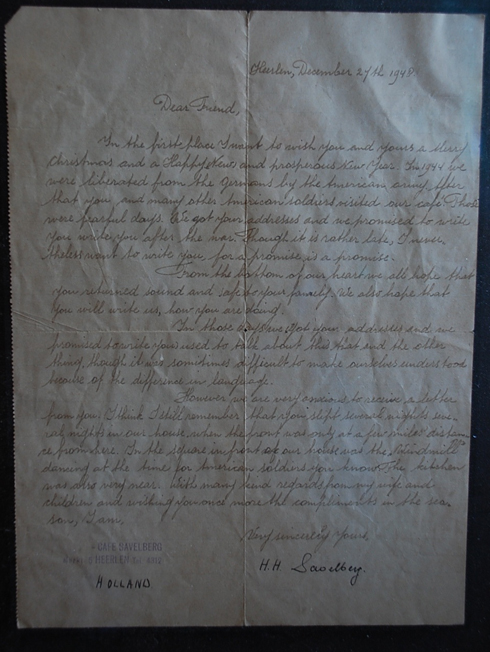 Heerlen, December 27th 1948.
Dear Friend,
In the first place I want to wish you and yours a Merry
Christmas and a Happy New and prosperous New Year. In 1944 we
were liberated from the Germans by the American army. After
that you and many other American soldiers visited our café. Those
were fearful days. We got your addresses and we promised to write
you write you after the war. Though it is rather late, I never
theless want to write you, for a promise is a promise.
From the bottom of our heart we all hope that
you returned sound and safe to your family. We also hope that
you will write us, how you are doing.
In those days we got your addresses and we
promised to write you used to talk about this that and the other
thing, though it was sometimes difficult to make ourselves understood
because of the difference in language.
However we are very anxious to receive a letter
from you. I think I still remember that you slept several nights seve
ral nights in our house, when the front was only at a few miles distance
from here. In the square in front of our house was the
dancing at the time for American soldiers you know. The kitchen
was also very near. With many kind regards from my wife and
children and wishing you once more the compliments in the sea
son, I am,
Very sincerely Yours,
H. H. Savelberg.
CAFE SAVELBERG
HEERLEN
HOLLAND